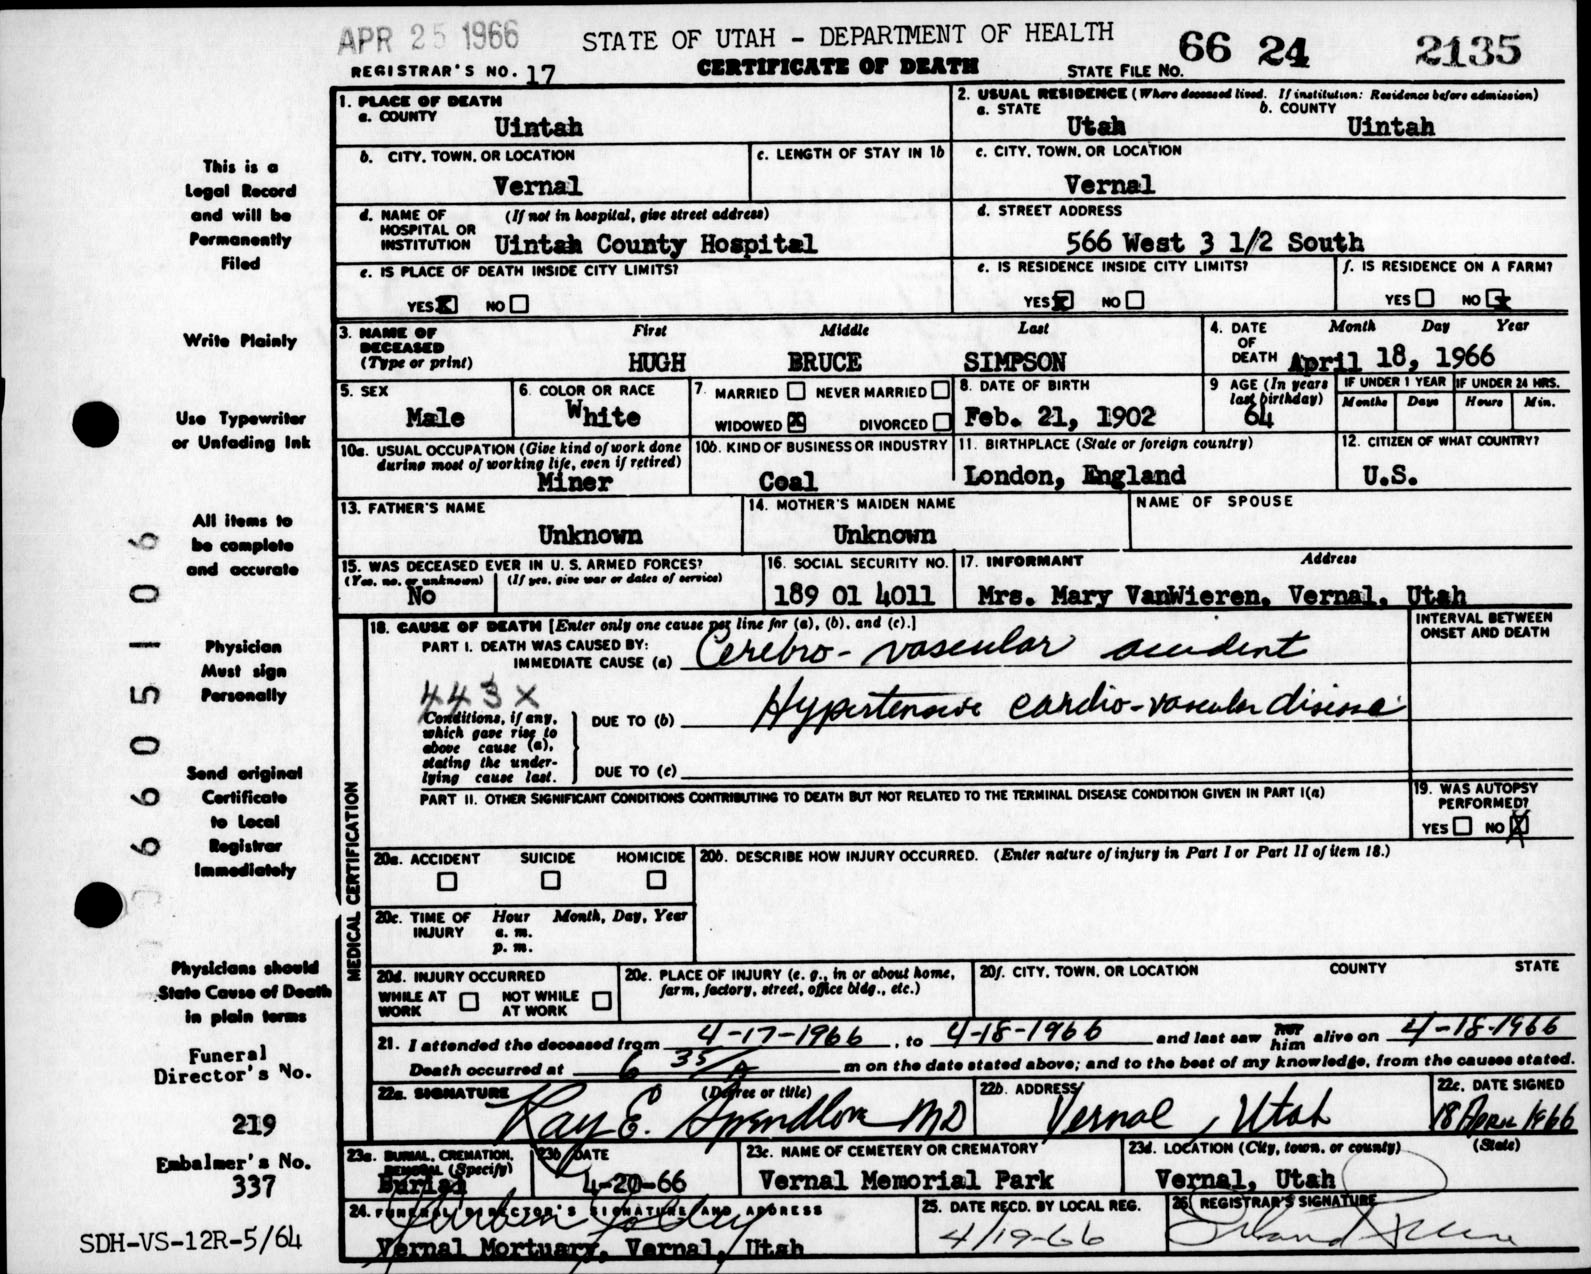 APR 25 1966
STATE OF UTAH - DEPARTMENT OF HEALTH
66 24 2135
REGISTRAR'S NO. 17
CERTIFICATE OF DEATH
STATE FILE NO.
1. PLACE OF DEATH
a. COUNTY
Uintah
2. USUAL RESIDENCE (Where deceased lived. If institution: Residence before admission)
a. STATE b. COUNTY
Utah Uintah
b. CITY, TOWN, OR LOCATION
Vernal
c. LENGTH OF STAY IN 1b
c. CITY, TOWN, OR LOCATION
Vernal
d. NAME OF HOSPITAL OR INSTITUTION (If not in hospital, give street address)
Uintah County Hospital
d. STREET ADDRESS
566 West 3 1/2 South
e. IS PLACE OF DEATH INSIDE CITY LIMITS?
YES NO
e. IS RESIDENCE INSIDE CITY LIMITS?
YES NO
f. IS RESIDENCE ON A FARM?
YES NO
3. NAME OF DECEASED (Type or print)
First Middle Last
HUGH BRUCE SIMPSON
4. DATE OF DEATH
Month Day Year
April 18, 1966
5. SEX
Male
6. COLOR OR RACE
White
7. MARRIED NEVER MARRIED
WIDOWED X DIVORCED
8. DATE OF BIRTH
Feb. 21, 1902
9 AGE (In years last birthday)
64
IF UNDER 1 YEAR
Months Days
IF UNDER 24 HRS.
Hours Min.
10a. USUAL OCCUPATION (Give kind of work done during most of working life, even if retired)
Miner
10b. KIND OF BUSINESS OR INDUSTRY
Coal
11. BIRTHPLACE (State or foreign country)
London, England
12. CITIZEN OF WHAT COUNTRY?
U.S.
13. FATHER'S NAME
Unknown
14. MOTHER'S MAIDEN NAME
Unknown
NAME OF SPOUSE
15. WAS DECEASED EVER IN U. S. ARMED FORCES?
(Yes, no, or unknown) (If yes, give war or dates of service)
No
16. SOCIAL SECURITY NO.
189 01 4011
17. INFORMANT Address
Mrs. Mary VanWieren, Vernal, Utah
MEDICAL CERTIFICATION
18. CAUSE OF DEATH [Enter only one cause per line for (a), (b), and (c).]
INTERVAL BETWEEN ONSET AND DEATH
PART I. DEATH WAS CAUSED BY:
IMMEDIATE CAUSE (a) Cerebro-vascular accident
443 X
Conditions, if any, which gave rise to above cause (a), stating the underlying cause last.
DUE TO (b) Hypertensive cardio-vascular disease
DUE TO (c)
PART II. OTHER SIGNIFICANT CONDITIONS CONTRIBUTING TO DEATH BUT NOT RELATED TO THE TERMINAL DISEASE CONDITION GIVEN IN PART I(a)
19. WAS AUTOPSY PERFORMED?
YES NO X
20a. ACCIDENT SUICIDE HOMICIDE
20b. DESCRIBE HOW INJURY OCCURRED. (Enter nature of injury in Part I or Part II of item 18.)
20c. TIME OF INJURY
Hour Month, Day, Year
a. m.
p. m.
20d. INJURY OCCURRED
WHILE AT WORK NOT WHILE AT WORK
20e. PLACE OF INJURY (e. g., in or about home, farm, factory, street, office bldg., etc.)
20f. CITY, TOWN, OR LOCATION COUNTY STATE
21. I attended the deceased from 4-17-1966, to 4-18-1966 and last saw him alive on 4-18-1966
Death occurred at 6 35/ m on the date stated above; and to the best of my knowledge, from the causes stated.
22a. SIGNATURE (Degree or title)
Ray E. Spendlove MD
22b. ADDRESS
Vernal, Utah
22c. DATE SIGNED
18 APRIL 1966
23a. BURIAL, CREMATION, REMOVAL (Specify)
Burial
23b DATE
4-20-66
23c. NAME OF CEMETERY OR CREMATORY
Vernal Memorial Park
23d. LOCATION (City, town, or county) (State)
Vernal, Utah
24. FUNERAL DIRECTOR'S SIGNATURE AND ADDRESS
Vernal Mortuary, Vernal, Utah
25. DATE RECD. BY LOCAL REG.
4/19-66
26. REGISTRAR'S SIGNATURE
This is a
Legal Record
and will be
Permanently
Filed
Write Plainly
Use Typewriter
or Unfading Ink
All items to
be complete
and accurate
Physician
Must sign
Personally
Send original
Certificate
to Local
Registrar
Immediately
Physicians should
State Cause of Death
in plain terms
Funeral
Director's No.
219
Embalmer's No.
337
SDH-VS-12R-5/64
6605106